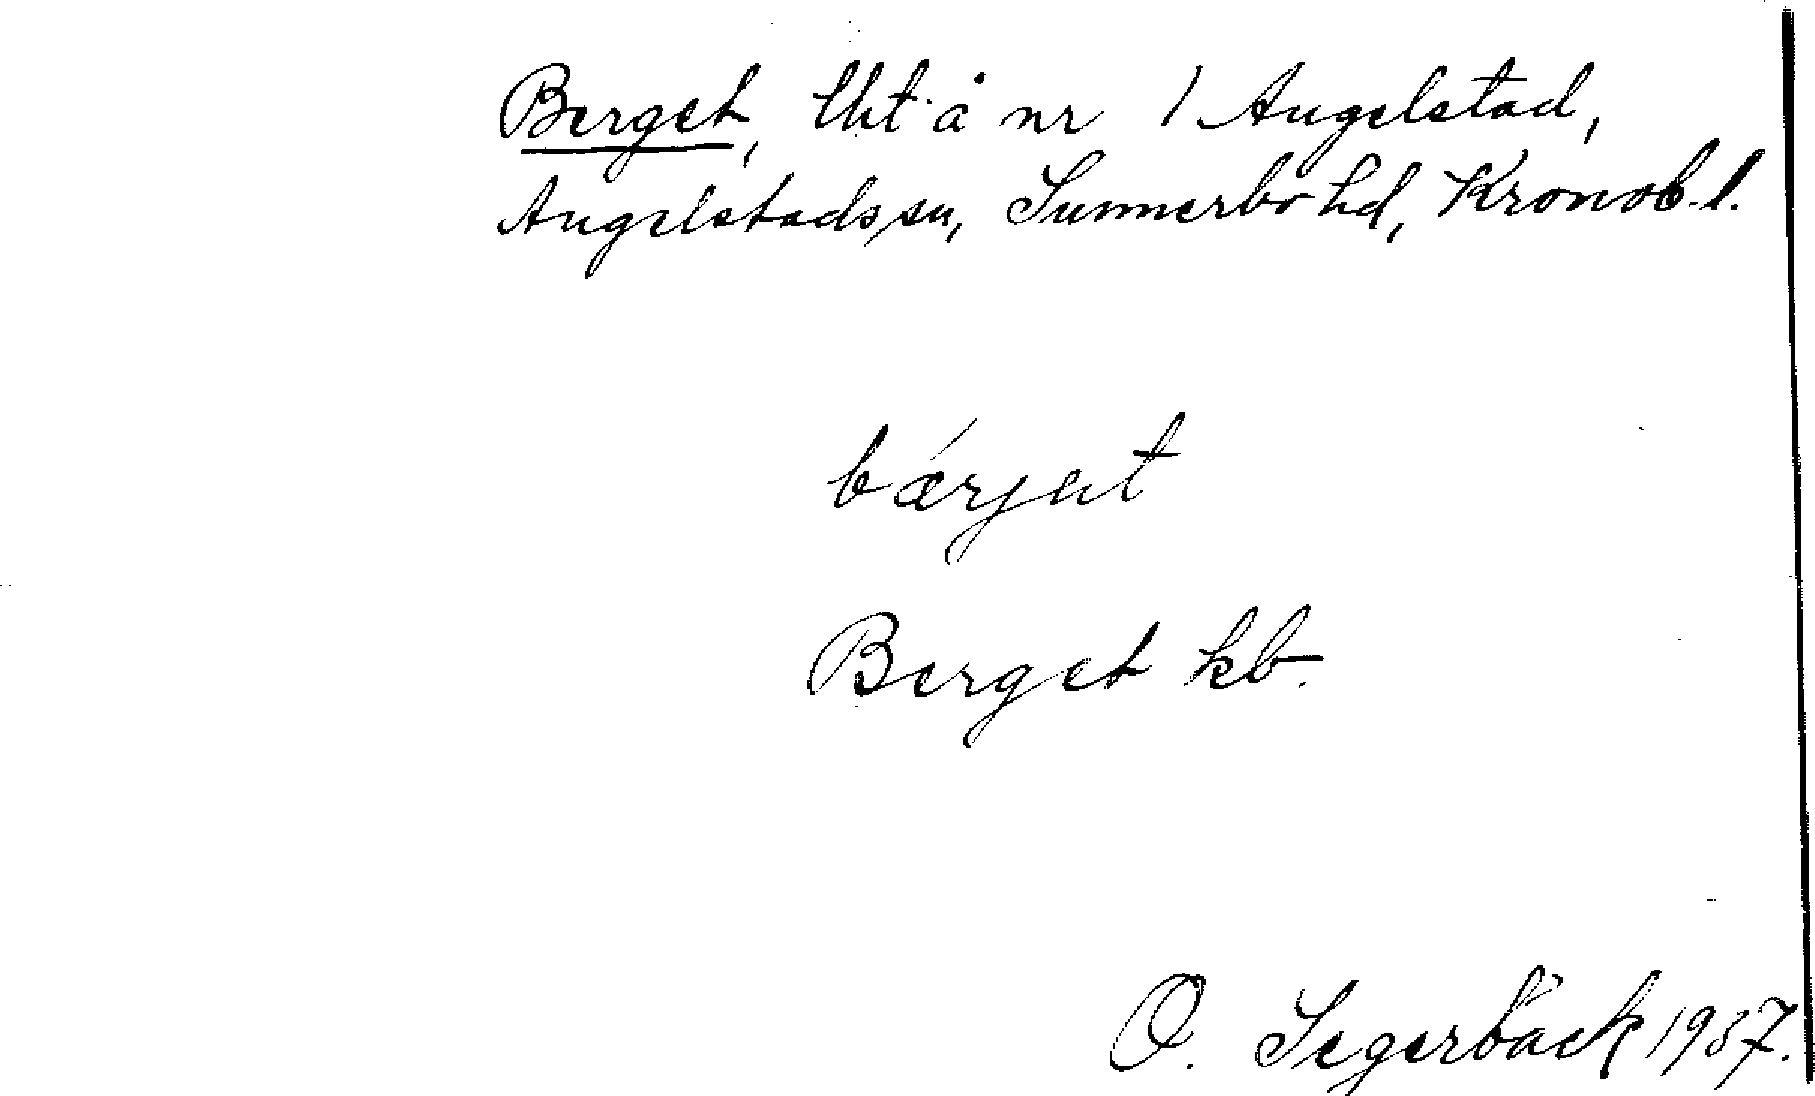 Berget, lht å nr 1 Angelstad,
Angelstads sn, Sunnerbo hd, Kronob. l.
bǽrjat
Berget kb.
O. Segerbäck 1937.